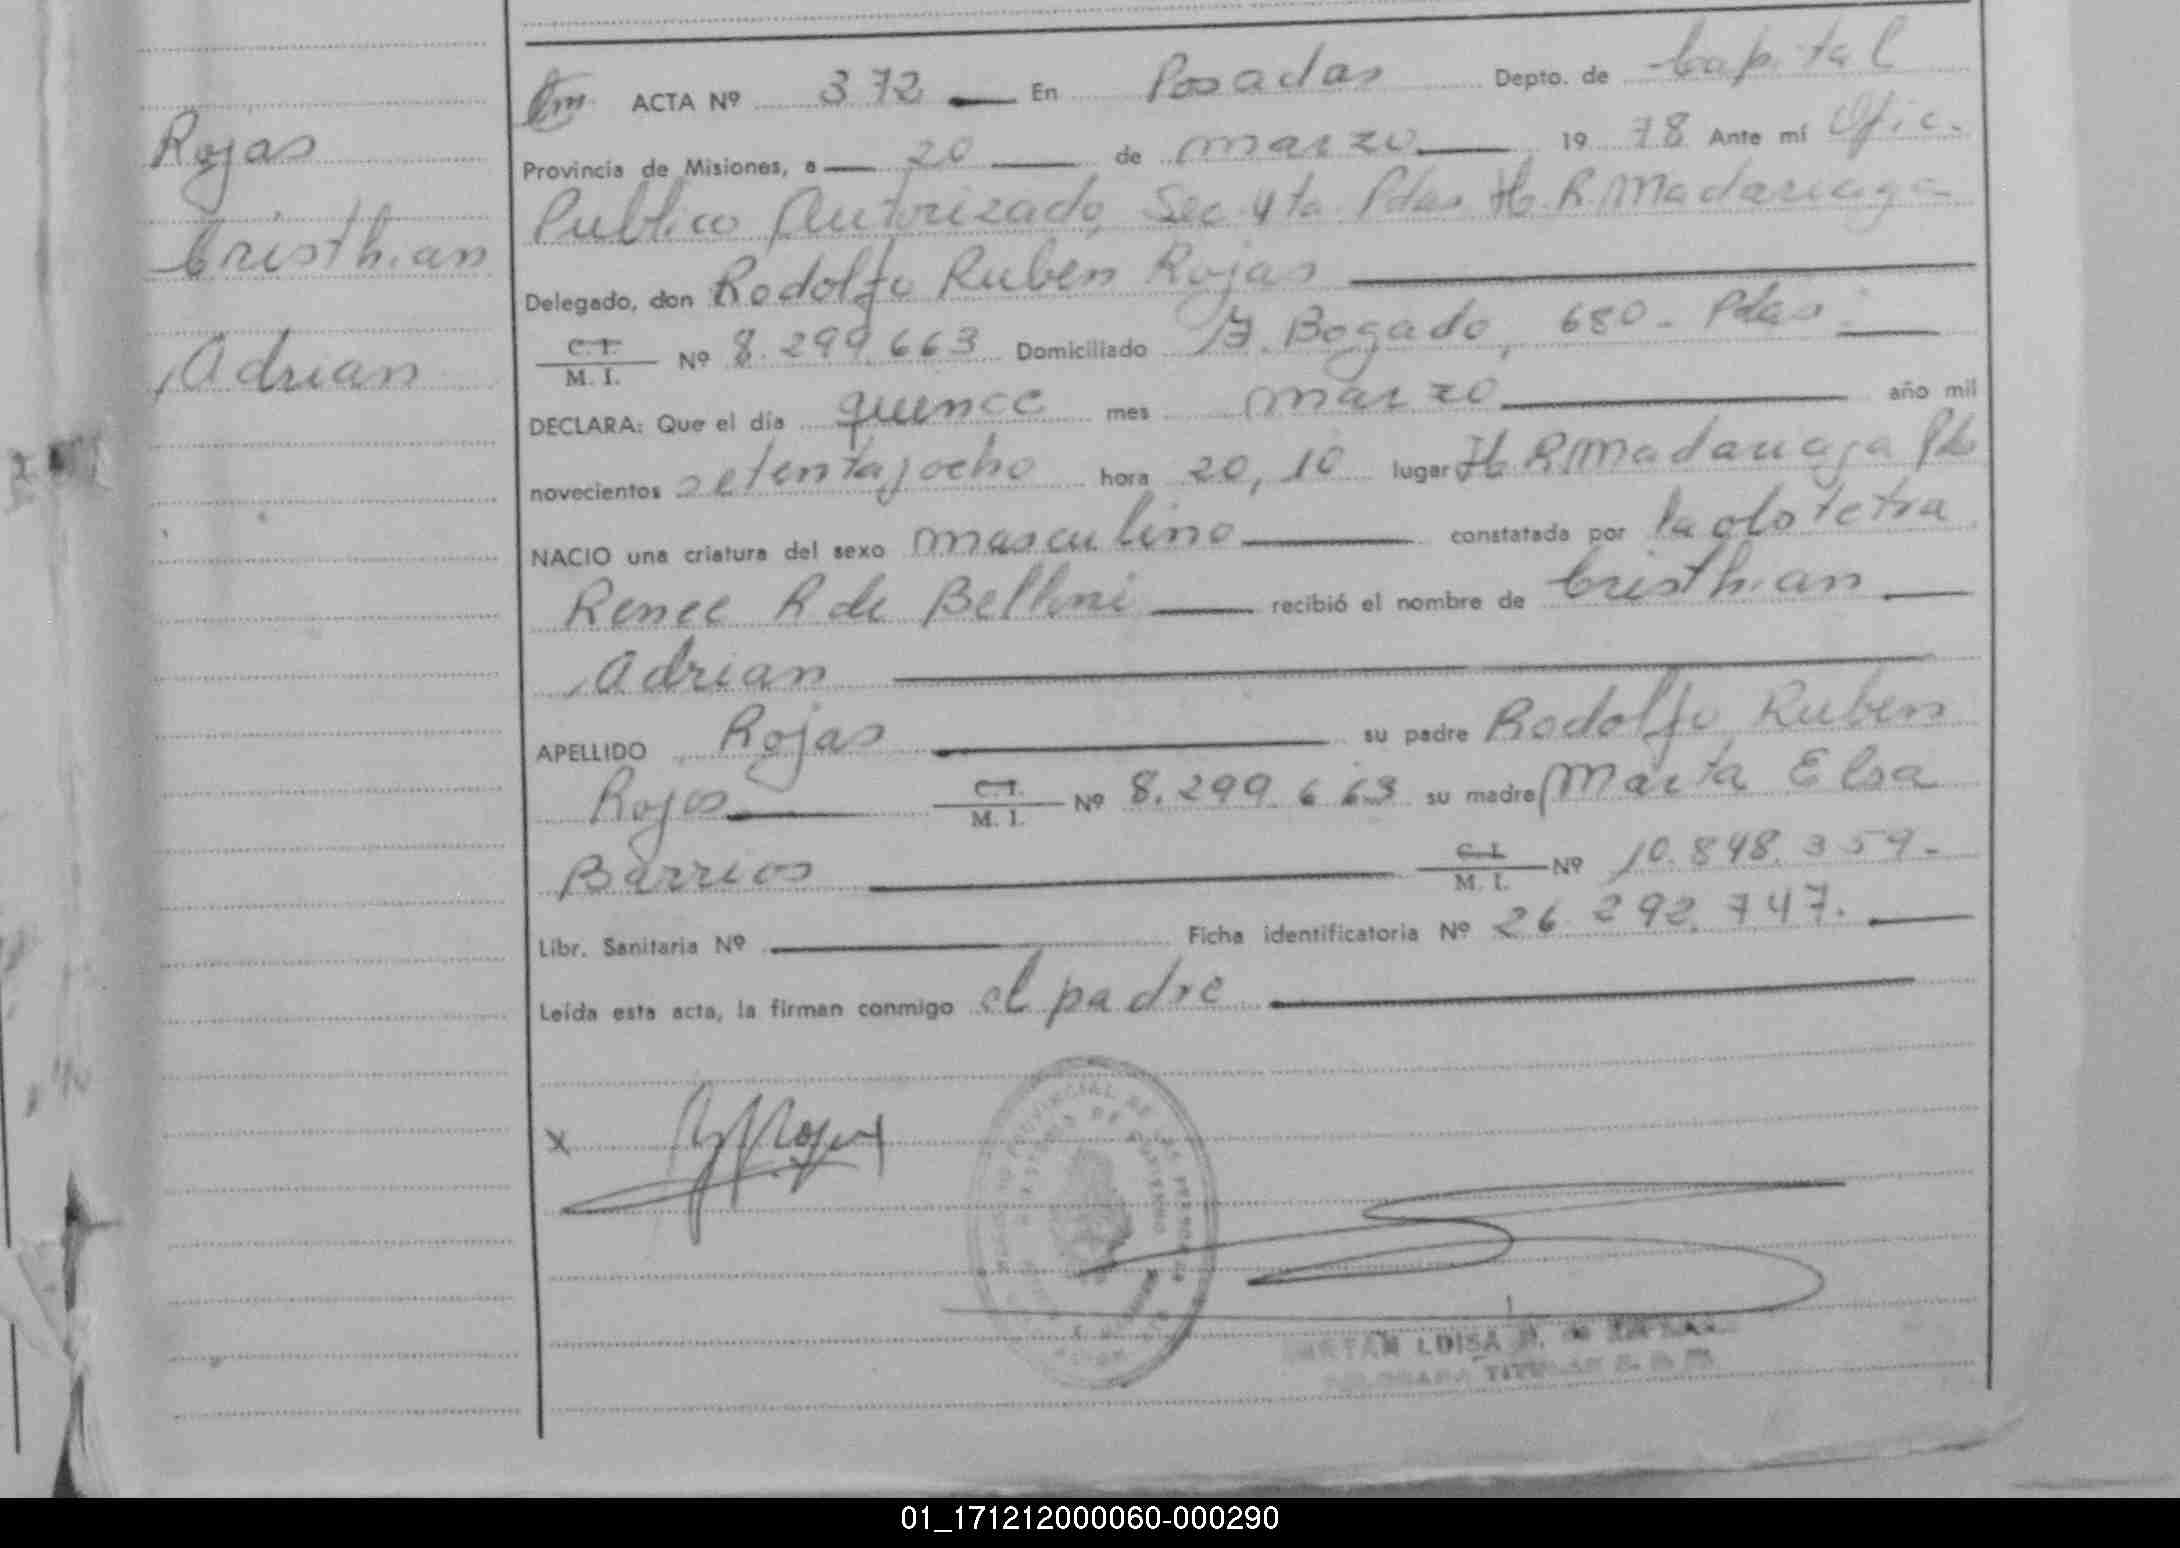 Rojas
Cristhian
Adrian
ACTA Nº 372 En Posadas Depto. de Capital
Provincia de Misiones, a 20 de marzo 1978 Ante mí Ofic.
Publico Autorizado, Sec 4ta Pdas H. R. Madariaga
Delegado, don Rodolfo Ruben Rojas
C. I.
M. I. Nº 8.299.663 Domiciliado Bogado, 680 - Pdas
DECLARA: Que el día quince mes marzo año mil
novecientos setentayocho hora 20,10 lugar H. R. Madariaga
NACIO una criatura del sexo masculino constatada por la obstetra
Renee R de Bellini recibió el nombre de Cristhian
Adrian
APELLIDO Rojas su padre Rodolfo Ruben
Rojas C. I.
M. I. Nº 8.299.663 su madre Marta Elsa
Barrios C. I.
M. I. Nº 10.848.359.-
Libr. Sanitaria Nº Ficha identificatoria Nº 26.292.747.
Leída esta acta, la firman conmigo el padre
X
LUISA
TITULAR
01_171212000060-000290